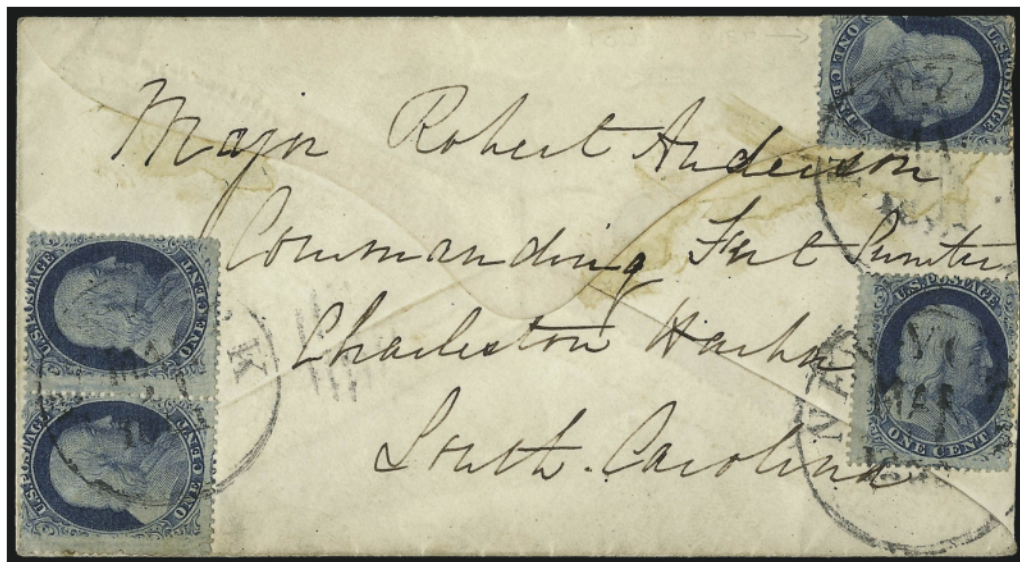 Major Robert Anderson
Commanding Fort Sumter
Charleston Harbor
South. Carolina
U.S. POSTAGE
ONE CENT
U.S. POSTAGE
ONE CENT
U.S. POSTAGE
ONE CENT
U.S. POSTAGE
ONE CENT
NEW YO
MAR